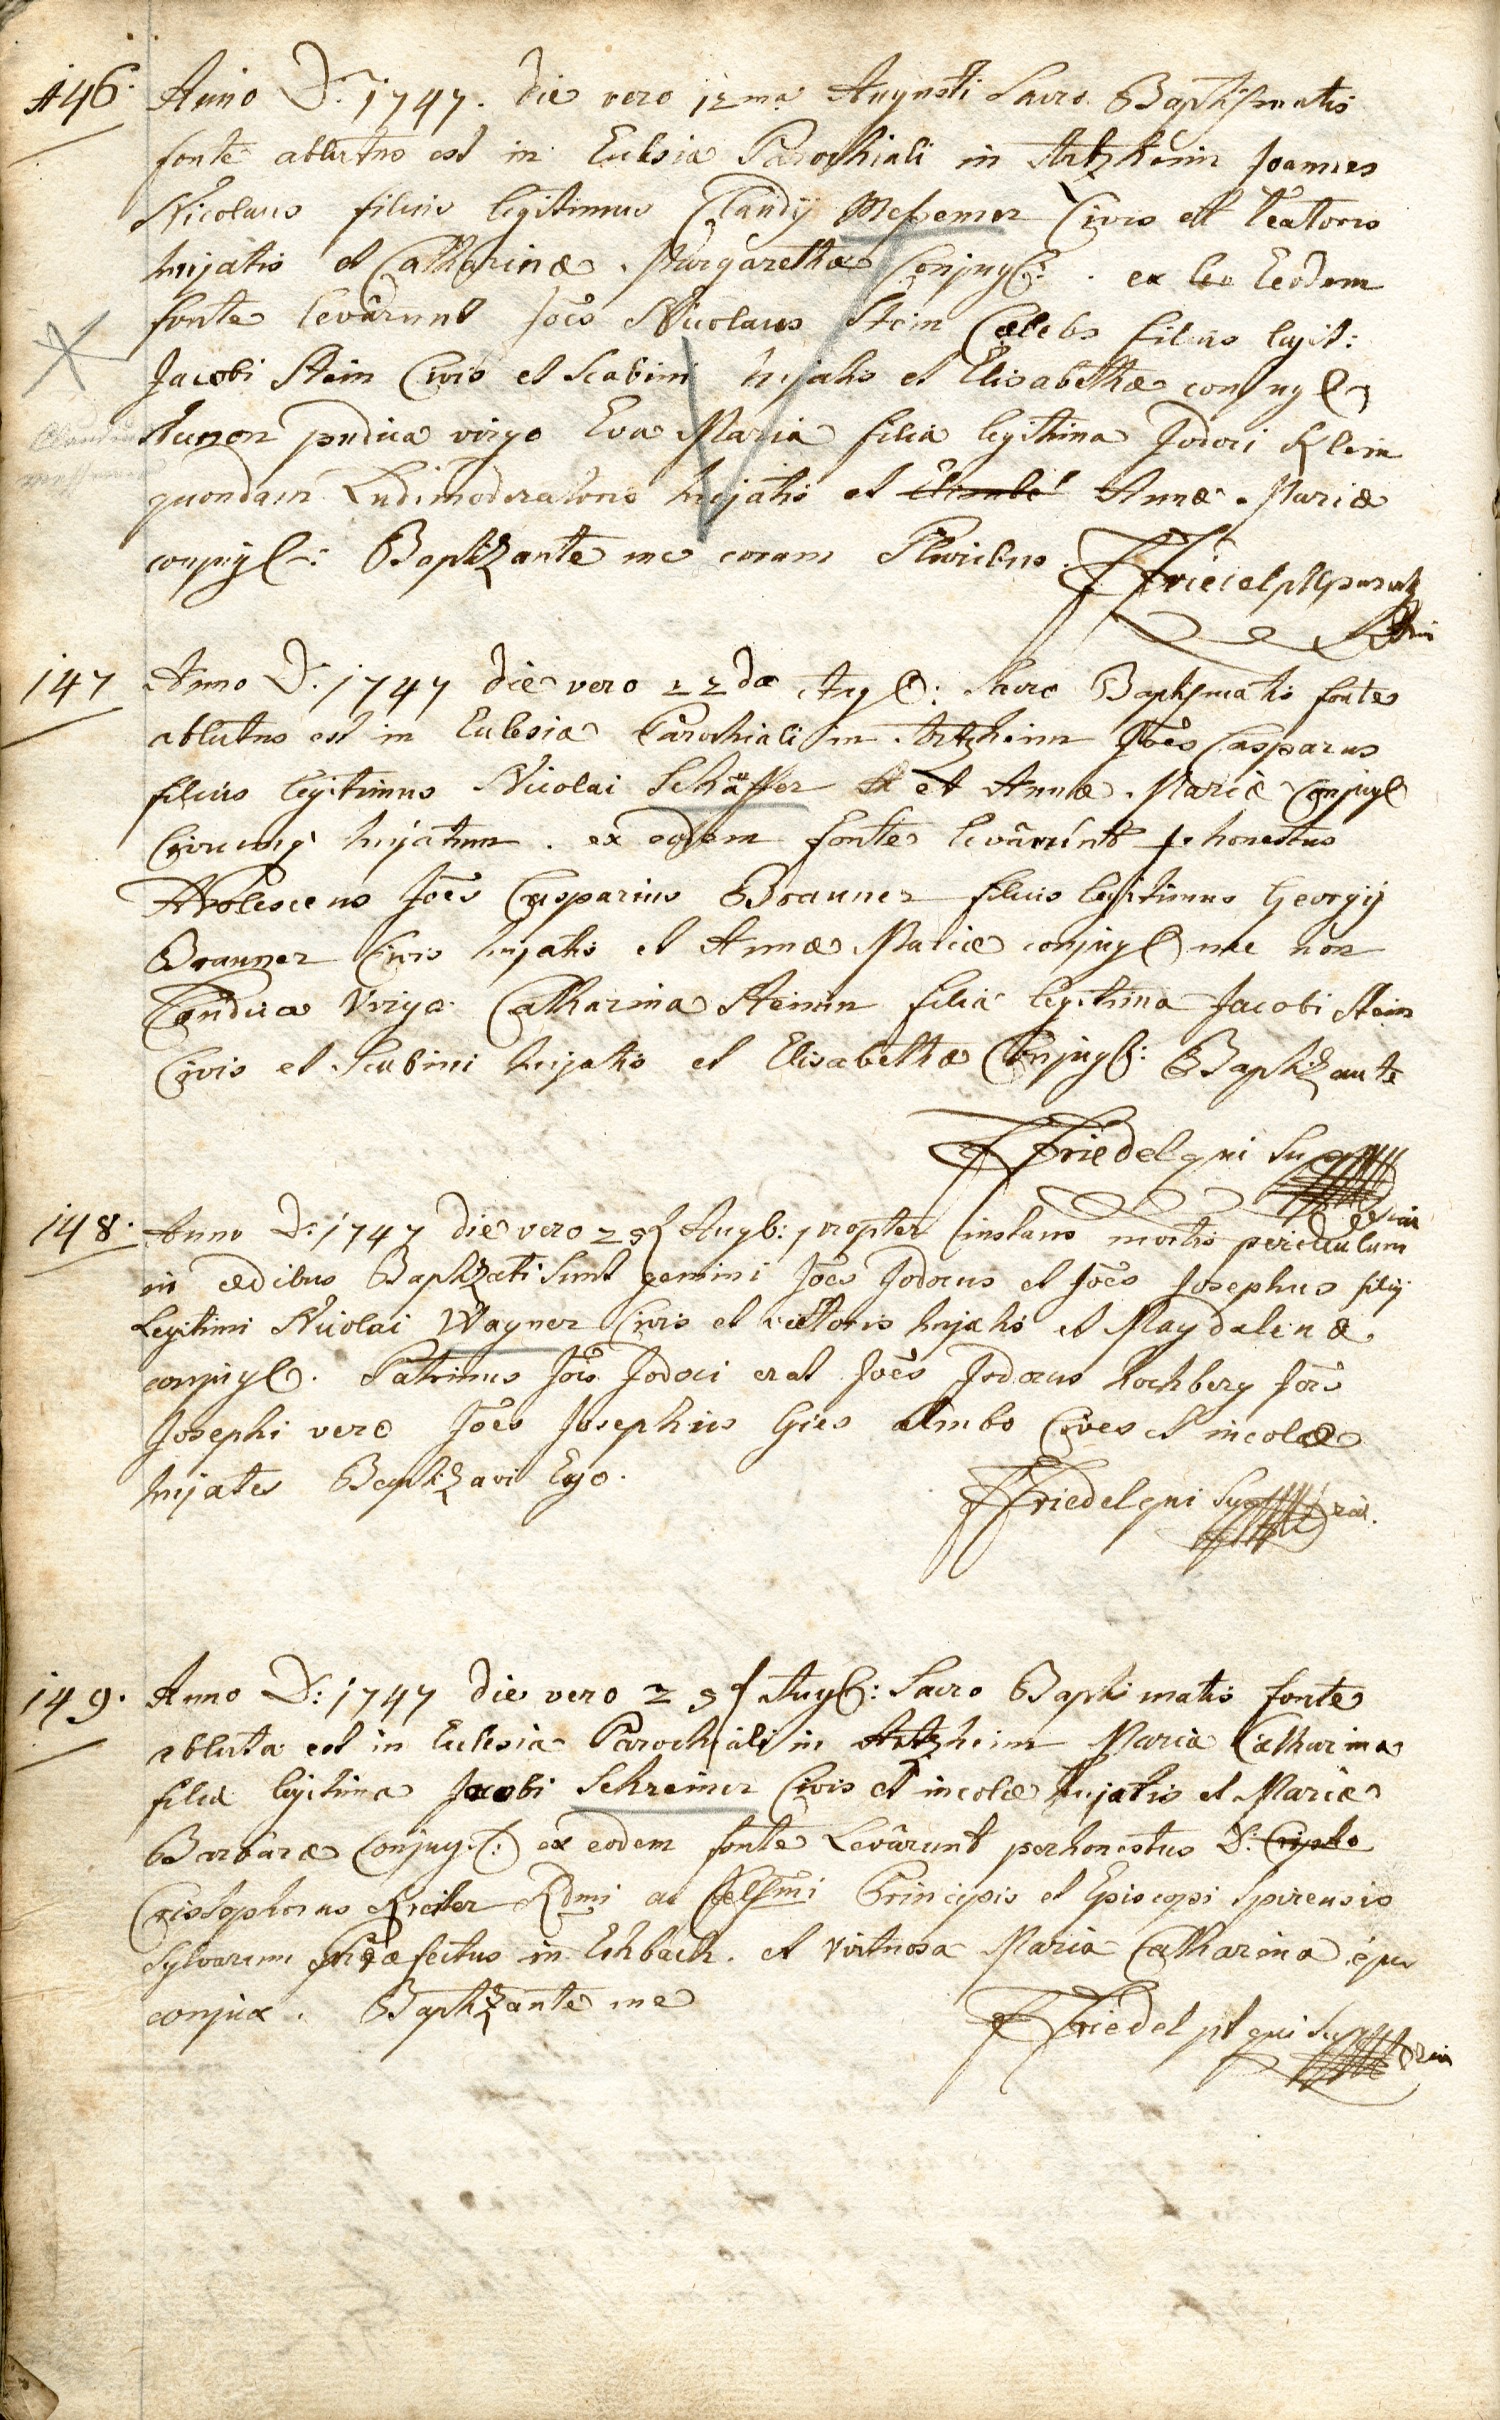 146. Anno D: 1747. die vero 12ma Augusti Sacro Baptismatis
fonte ablutus est in Eclesia Parochiali in Artzheim Joannes
Nicolaus filius legitimus Claudij Messemer Civis et Textoris
hujatis et Catharinæ Margarethæ Conjug: . ex Eodem
fonte levârunt Jões Nicolaus Stein Cælebs filius legit:
Jacobi Stein Civis et Scabini hujatis et Elisabethæ conjug
necnon pudica virgo Eva Maria filia legitima Jodoci Klein
quondam Ludimoderatoris hujatis et Annæ Mariæ
conjug: Baptizante me coram Pluribus
Friedel
147 Anno D: 1747 die vero 22da Aug: Sacro Baptismatis fonte
ablutus est in Eclesia Parochiali in Artzheim Jões Casparus
filius legitimus Nicolai Schäffer et Annæ Mariæ Conjug
Civium hujatum . ex eodem fonte levârunt honestus
Adolescens Jões Casparus Brauner filius legitimus Georgij
Brauner Civis hujatis et Annæ Mariæ conjug nec non
Pudica Virgo Catharina Steinin filia legitima Jacobi Stein
Civis et Scabini hujatis et Elisabethæ Conjug: Baptizante
Friedel qui supra
148. Anno D: 1747 die vero 29 Augb: propter instans mortis periculum
in ædibus Baptizati sunt gemini Jões Jodocus et Jões Josephus filij
Legitimi Nicolai Wagner Civis et hujatis et Magdalenæ
conjug. Patrinus Jõis Jodoci erat Jões Jodocus Hochberg Jõis
Josephi vero Jões Josephus Gies ambo Cives et incolæ
hujates Baptizavi Ego.
Friedel qui supra
149. Anno D: 1747 die vero 29 Augb: Sacro Baptimatis fonte
abluta est in Eclesia Parochiali in Artzheim Maria Catharina
filia legitima Jacobi Schreiner Civis et incolæ hujatis et Mariæ
Barbaræ Conjug: ex eodem fonte Levârunt perhonestus D:
Cristophorus Reiter Rdmi ac Celssmi Principis et Episcopi Spirensis
Sylvarum Præfectus in Eshbach. et virtuosa Maria Catharina ejus
conjux. Baptizante me
Friedel pt qui supra